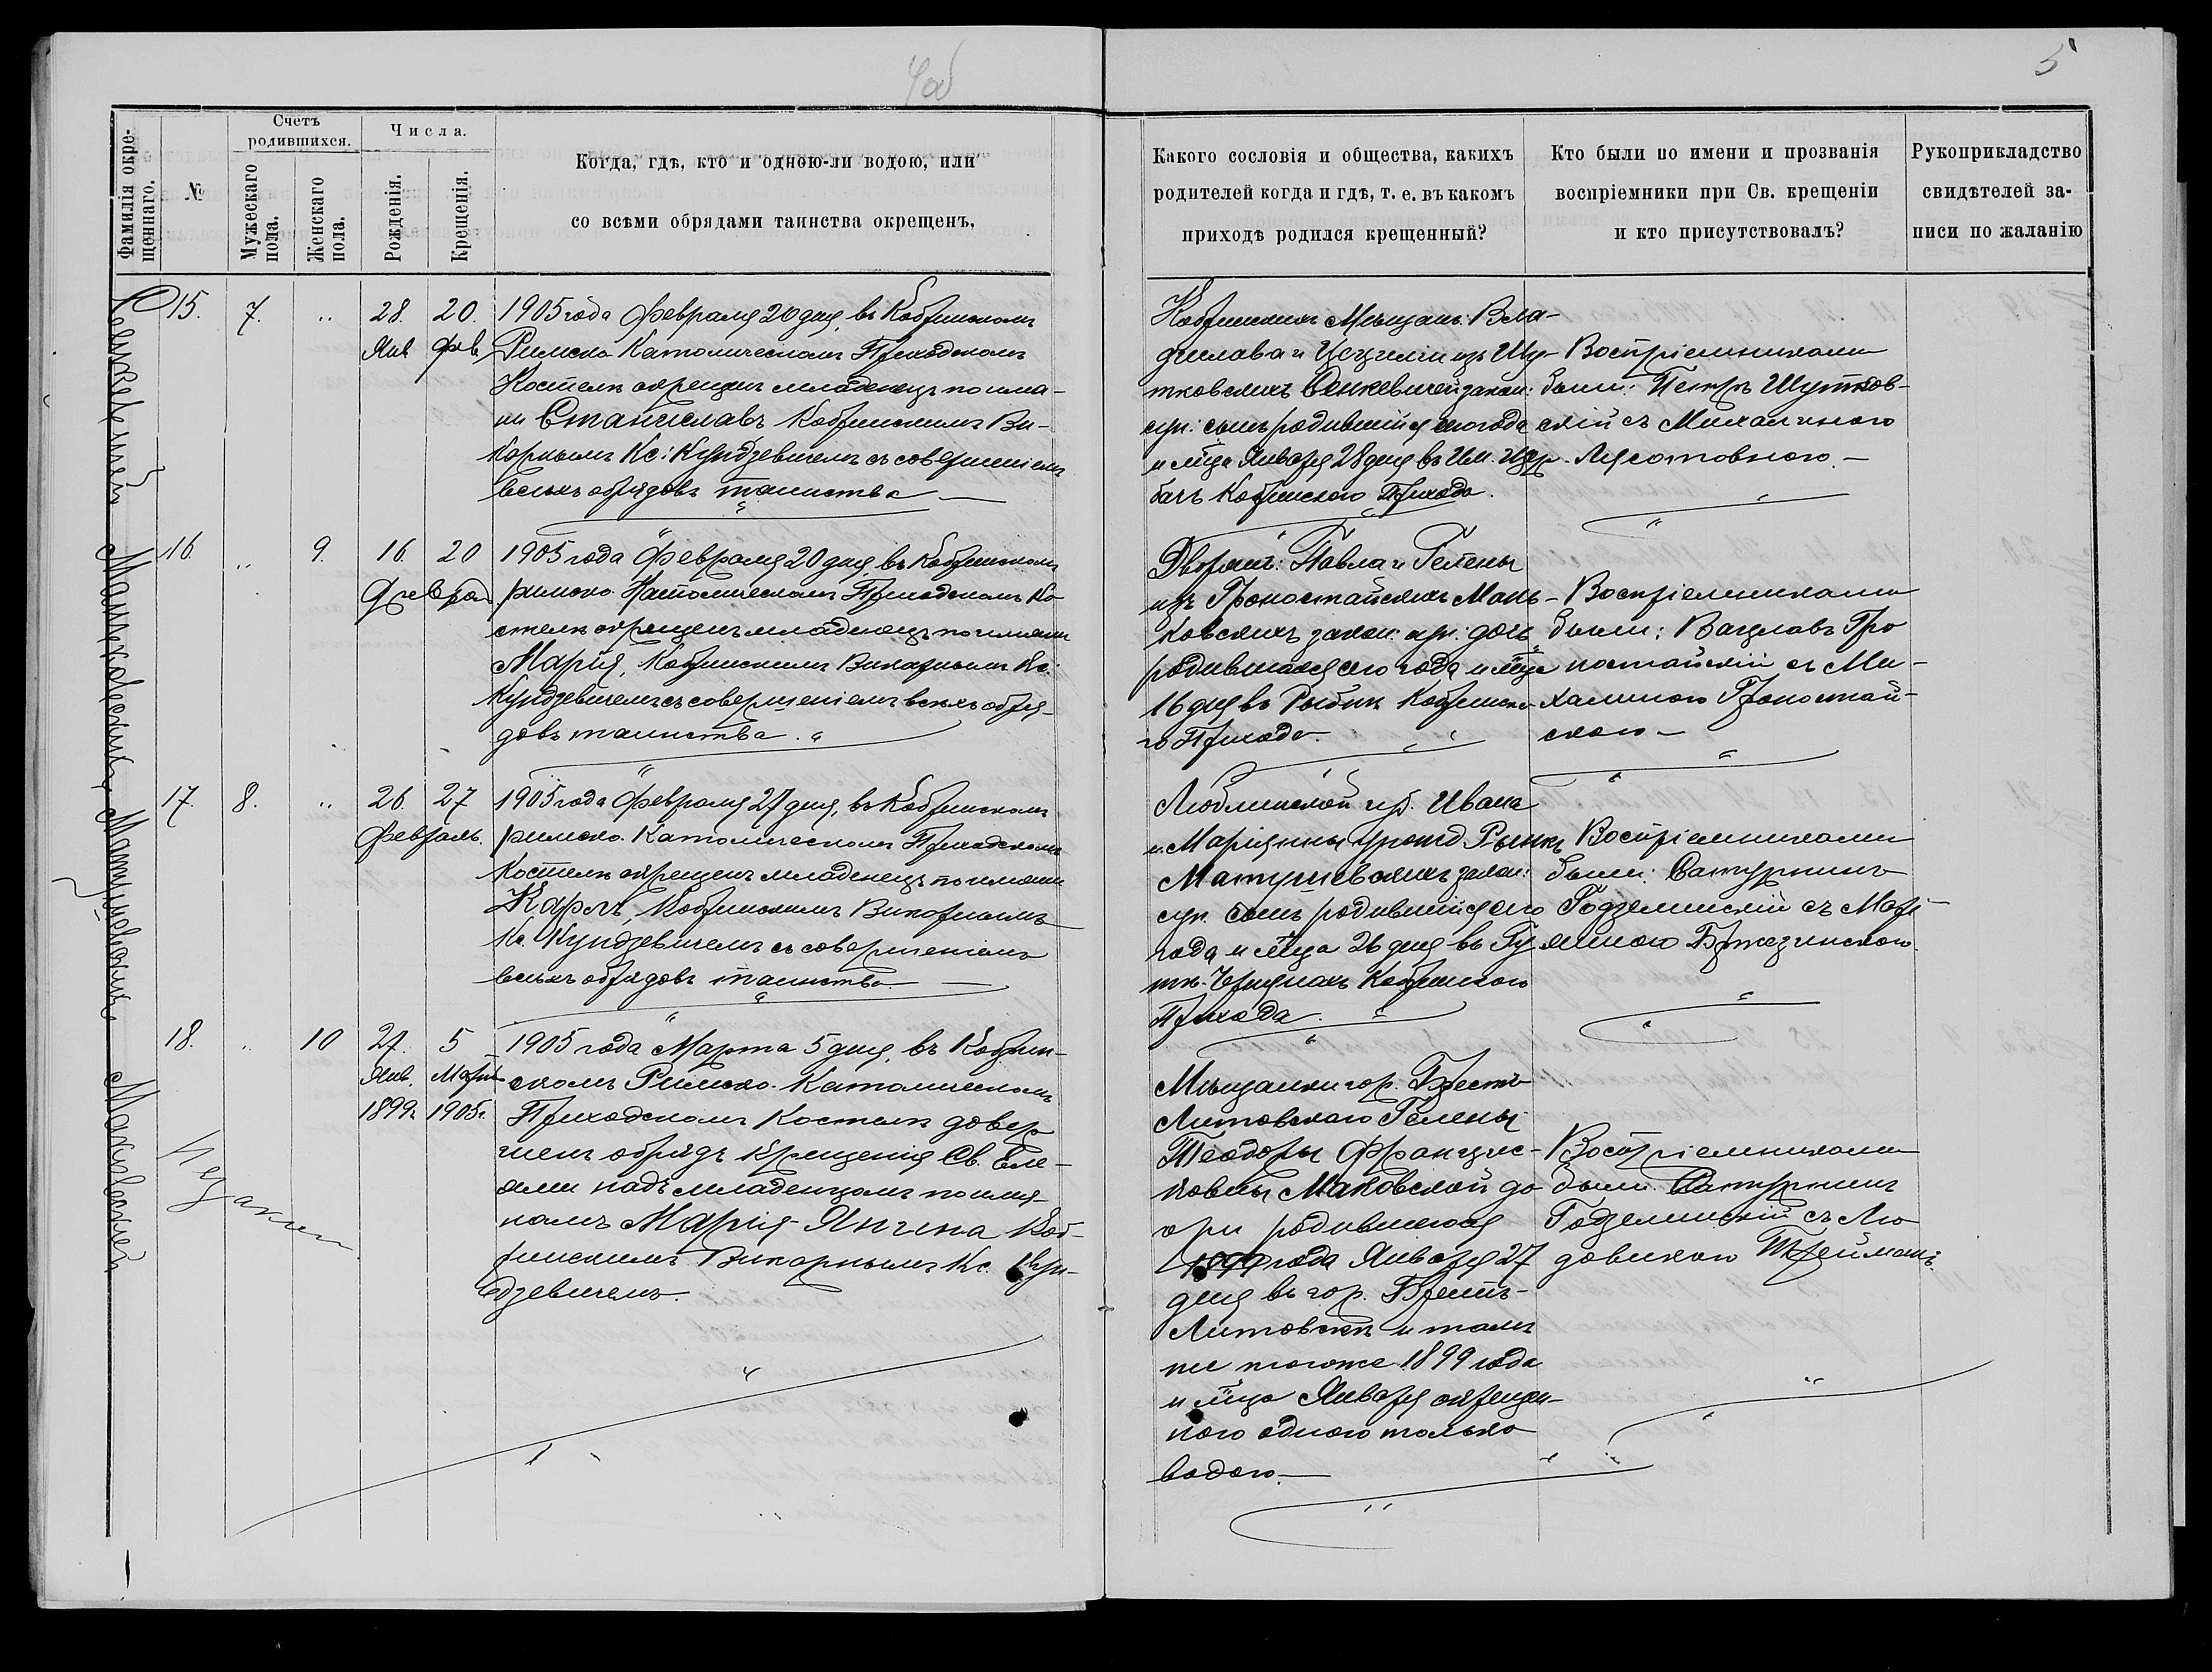 4об
5
Фамилія окре-
щеннаго.
№
Счетъ
родившихся.
Мужескаго
пола.
Женскаго
пола.
Числа.
Рожденія.
Крещенія.
Когда, гдѣ, кто и одною-ли водою, или
со всѣми обрядами таинства окрещенъ.
Какого сословія и общества, какихъ
родителей когда и гдѣ, т. е. въ какомъ
приходѣ родился крещенный?
Кто были по имени и прозванія
воспріемники при Св. крещеніи
и кто присутствовалъ?
Рукоприкладство
свидѣтелей за-
писи по жаланію
15.
7.
28.
Янв
20.
Фев.
1905 года Февраля 20 дня, въ Кобринскомъ
Римско-Католическомъ Приходскомъ
Костелѣ окрещенъ младенецъ по име-
ни Станиславъ Кобринскимъ Ви-
карнымъ Кс: Кундзевичемъ съ совершеніемъ
всѣхъ обрядовъ таинства —
Кобринскихъ Мѣщанъ: Вла-
дислава и Цециліи изъ Шу-
тковскихъ Сенкевичей закон:
суп: сынъ родившійся сего года
и м̃ца Января 28 дня въ Им.
бахъ Кобринскаго Прихода.
Воспріемниками
были: Петръ Шутков-
скій съ Михалиною
16.
9.
16.
20
Феврал
1905 года Февраля 20 дня, въ Кобринскомъ
римско-Католическомъ Приходскомъ Ко
стелѣ окрещенъ младенецъ по имени
Марія, Кобринскимъ Викарнымъ Кс:
Кундзевичемъ съ совершеніемъ всѣхъ обря-
довъ таинства.
Дворянъ: Павла и Гелены
изъ Гроностайскихъ Мань-
ковскихъ закон: суп: дочь
родившаяся сего года и м̃ца
16 дня въ Рыбнѣ Кобринска-
го Прихода.
Воспріемниками
были: Вацлавъ Гро
ностайскій съ Ми-
халиною Гроностай-
скою —
17.
8.
26.
27
Февраль.
1905 года Февраля 27 дня, въ Кобринскомъ
римско-Католическомъ Приходскомъ
Костелѣ окрещенъ младенецъ по имени
Карлъ, Кобринскимъ Викарнымъ
Кс. Кундзевичемъ съ совершеніемъ
всѣхъ обрядовъ таинства —
Люблинской губ. Ивана
и Маріянны урожд. Рыникъ
Матушевскихъ закон:
суп. сынъ родившійся сего
года и м̃ца 26 дня въ Гу
тѣ-Чернянахъ Кобринскаго
Прихода.
Воспріемниками
были: Сатурнинъ
Годзелинскій съ Мар-
яниною Бржезинскою
18.
10
27.
Янв.
1899г.
5
Март
1905г.
Незакон.
1905 года Марта 5 дня, въ Кобрин-
скомъ Римско-Католическомъ
Приходскомъ Костелѣ довер
шенъ обрядъ крещенія Св. Еле-
ями надъ младенцомъ по име-
намъ Марія-Янина Коб-
ринскимъ Викарнымъ Кс. Кун-
дзевичемъ.
Мѣщанки гор. Брестъ-
Литовскаго Гелены-
Теодоры Францис-
ковны Маковской до
чри родившеюся
1899 года Января 27
дня въ гор. Брестъ-
Литовскѣ и тамъ
же тогоже 1899 года
и м̃ца Января окрещен-
ного одною только
водою. —
Воспріемниками
были: Сатурнинъ
Годзелинскій съ Лю
довикою Трейманъ.
Сенкевичей
Маньковскихъ
Матушевскихъ
Маковской